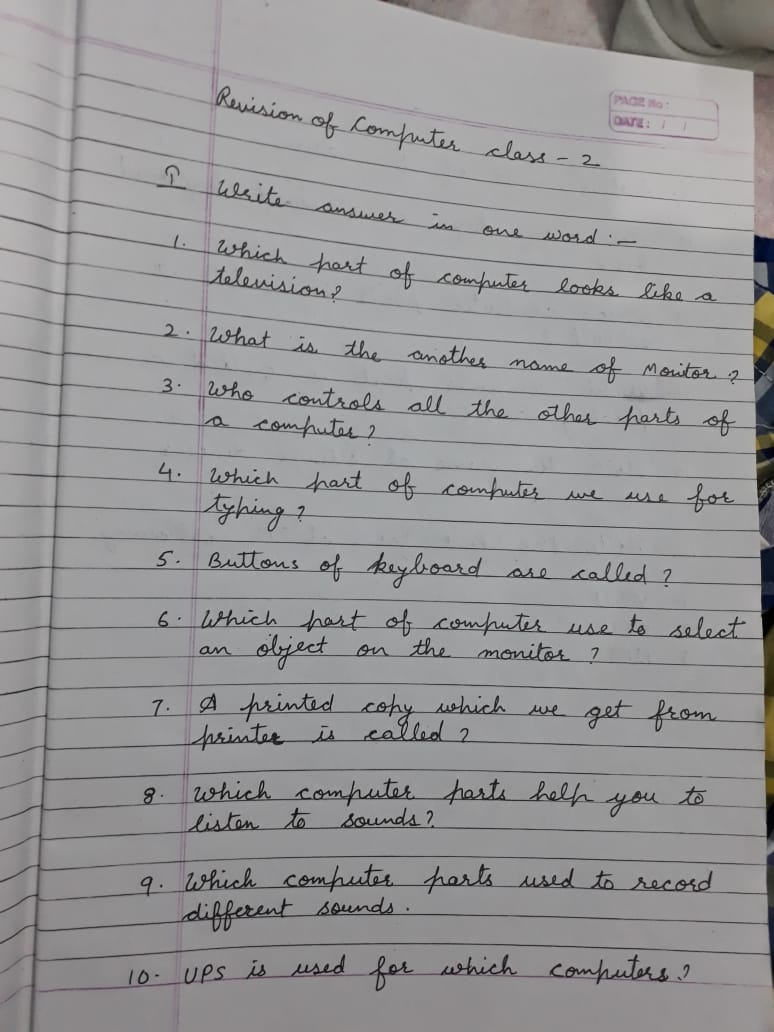 PAGE No:
DATE: / /
Revision of Computer class - 2
I Write answer in one word :-
1. Which part of computer looks like a
television?
2. What is the another name of Monitor?
3. Who controls all the other parts of
a computer?
4. Which part of computer we use for
typing?
5. Buttons of keyboard are called?
6. Which part of computer use to select
an object on the monitor?
7. A printed copy which we get from
printer is called?
8. Which computer parts help you to
listen to sounds?
9. Which computer parts used to record
different sounds.
10. UPS is used for which computers?